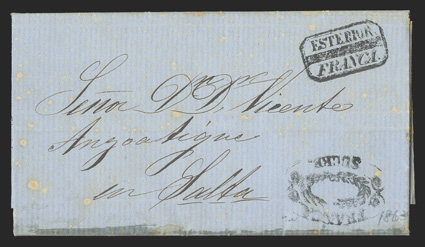 ESTERIOR
FRANCA.
Señor Dr. Dn. Vicente
Angoatigue
en Salta
SUCRE
FRANCA
186